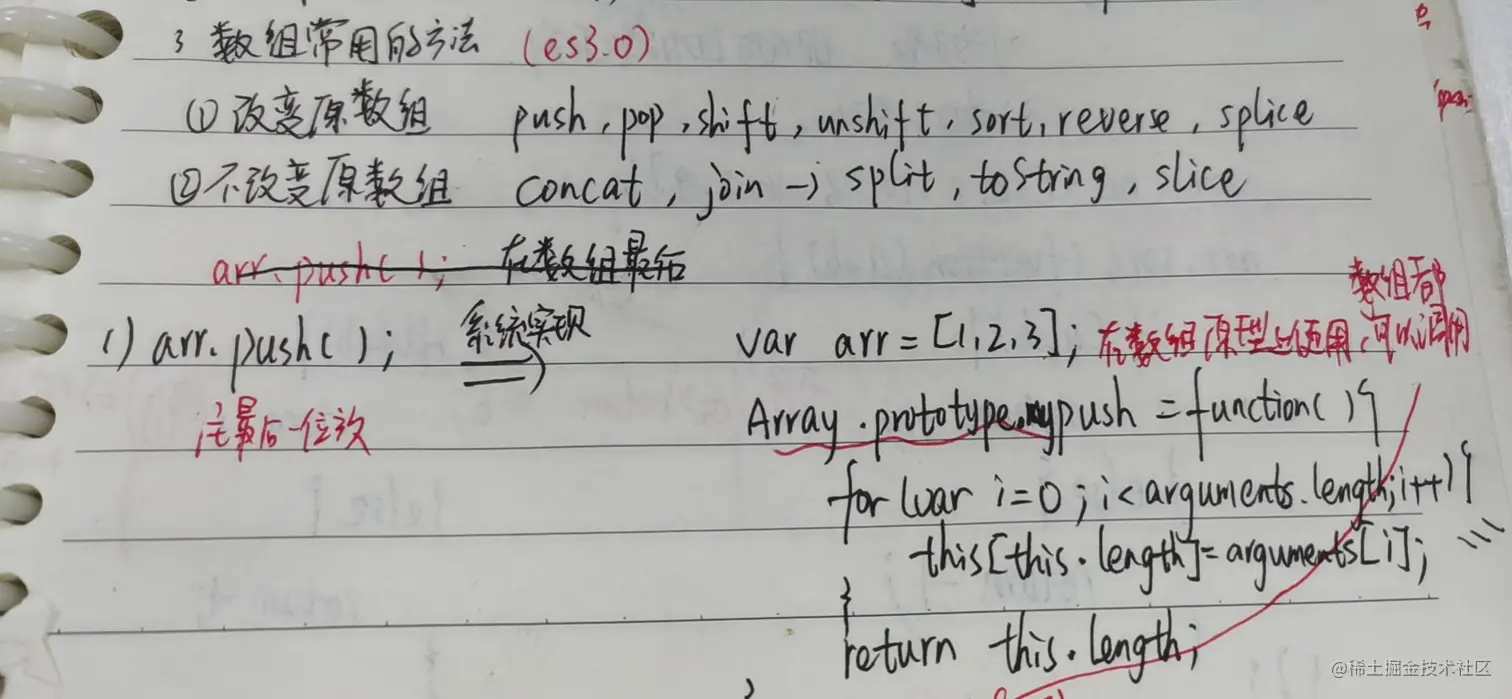 3 数组常用的方法 (es3.0)
① 改变原数组 push, pop, shift, unshift, sort, reverse, splice
② 不改变原数组 concat, join → split, toString, slice
arr.push(); 在数组最后
数组都
1) arr.push(); 系统实现 var arr = [1,2,3]; 在数组原型上使用,可以调用
往最后一位放 Array.prototype.mypush = function(){
for(var i=0; i<arguments.length; i++){
this[this.length]=arguments[i];
}
return this.length;
@稀土掘金技术社区